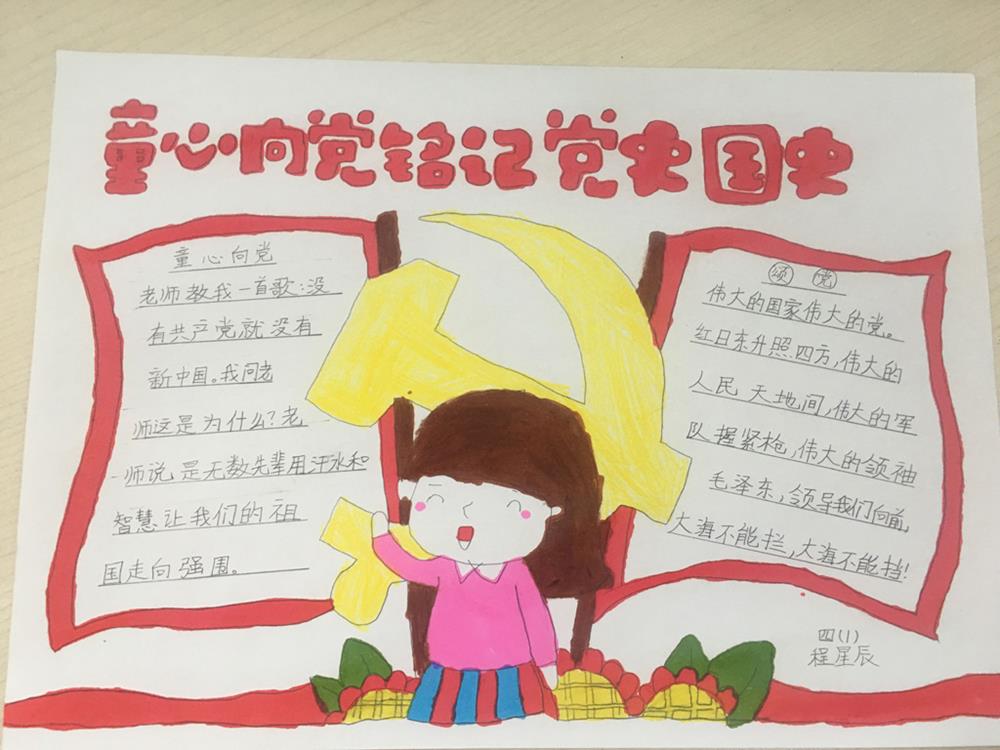 童心向党铭记党史国史
童心向党
老师教我一首歌:没
有共产党就没有
新中国。我问老
师这是为什么?老
师说,是无数先辈用汗水和
智慧让我们的祖
国走向强围。
颂党
伟大的国家伟大的党。
红日东升照四方,伟大的
人民天地间,伟大的军
队握紧枪,伟大的领袖
毛泽东,领导我们向前
大海不能拦,大海不能挡!
四(1)
程星辰